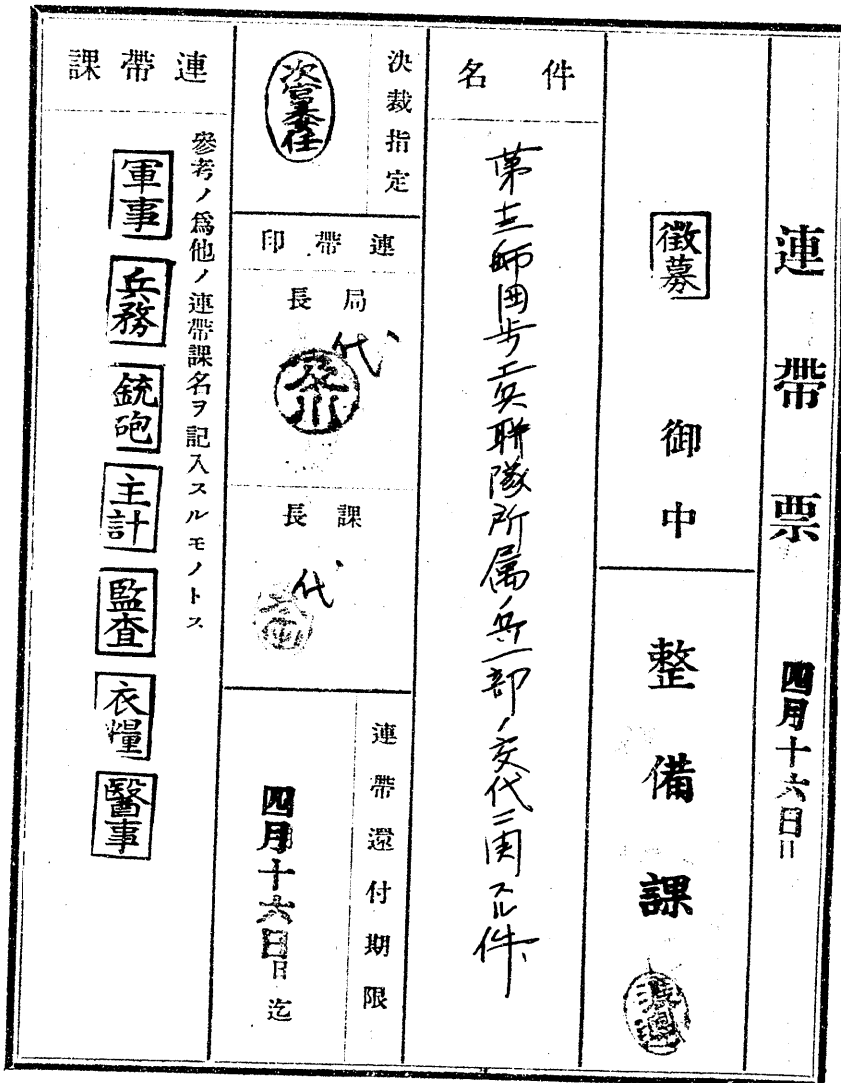 連帶票
四月十六日日
徴募 御中
整備課
件名
第十三師団歩工兵聯隊所属ノ兵一部ノ交代ニ関スル件
決裁指定
次官委任
連帶印
局長
代
及川
課長
代
連帶還付期限
四月十六日日迄
連帶課
參考ノ爲他ノ連帶課名ヲ記入スルモノトス
軍事
兵務
銃砲
主計
監査
衣糧
醫事